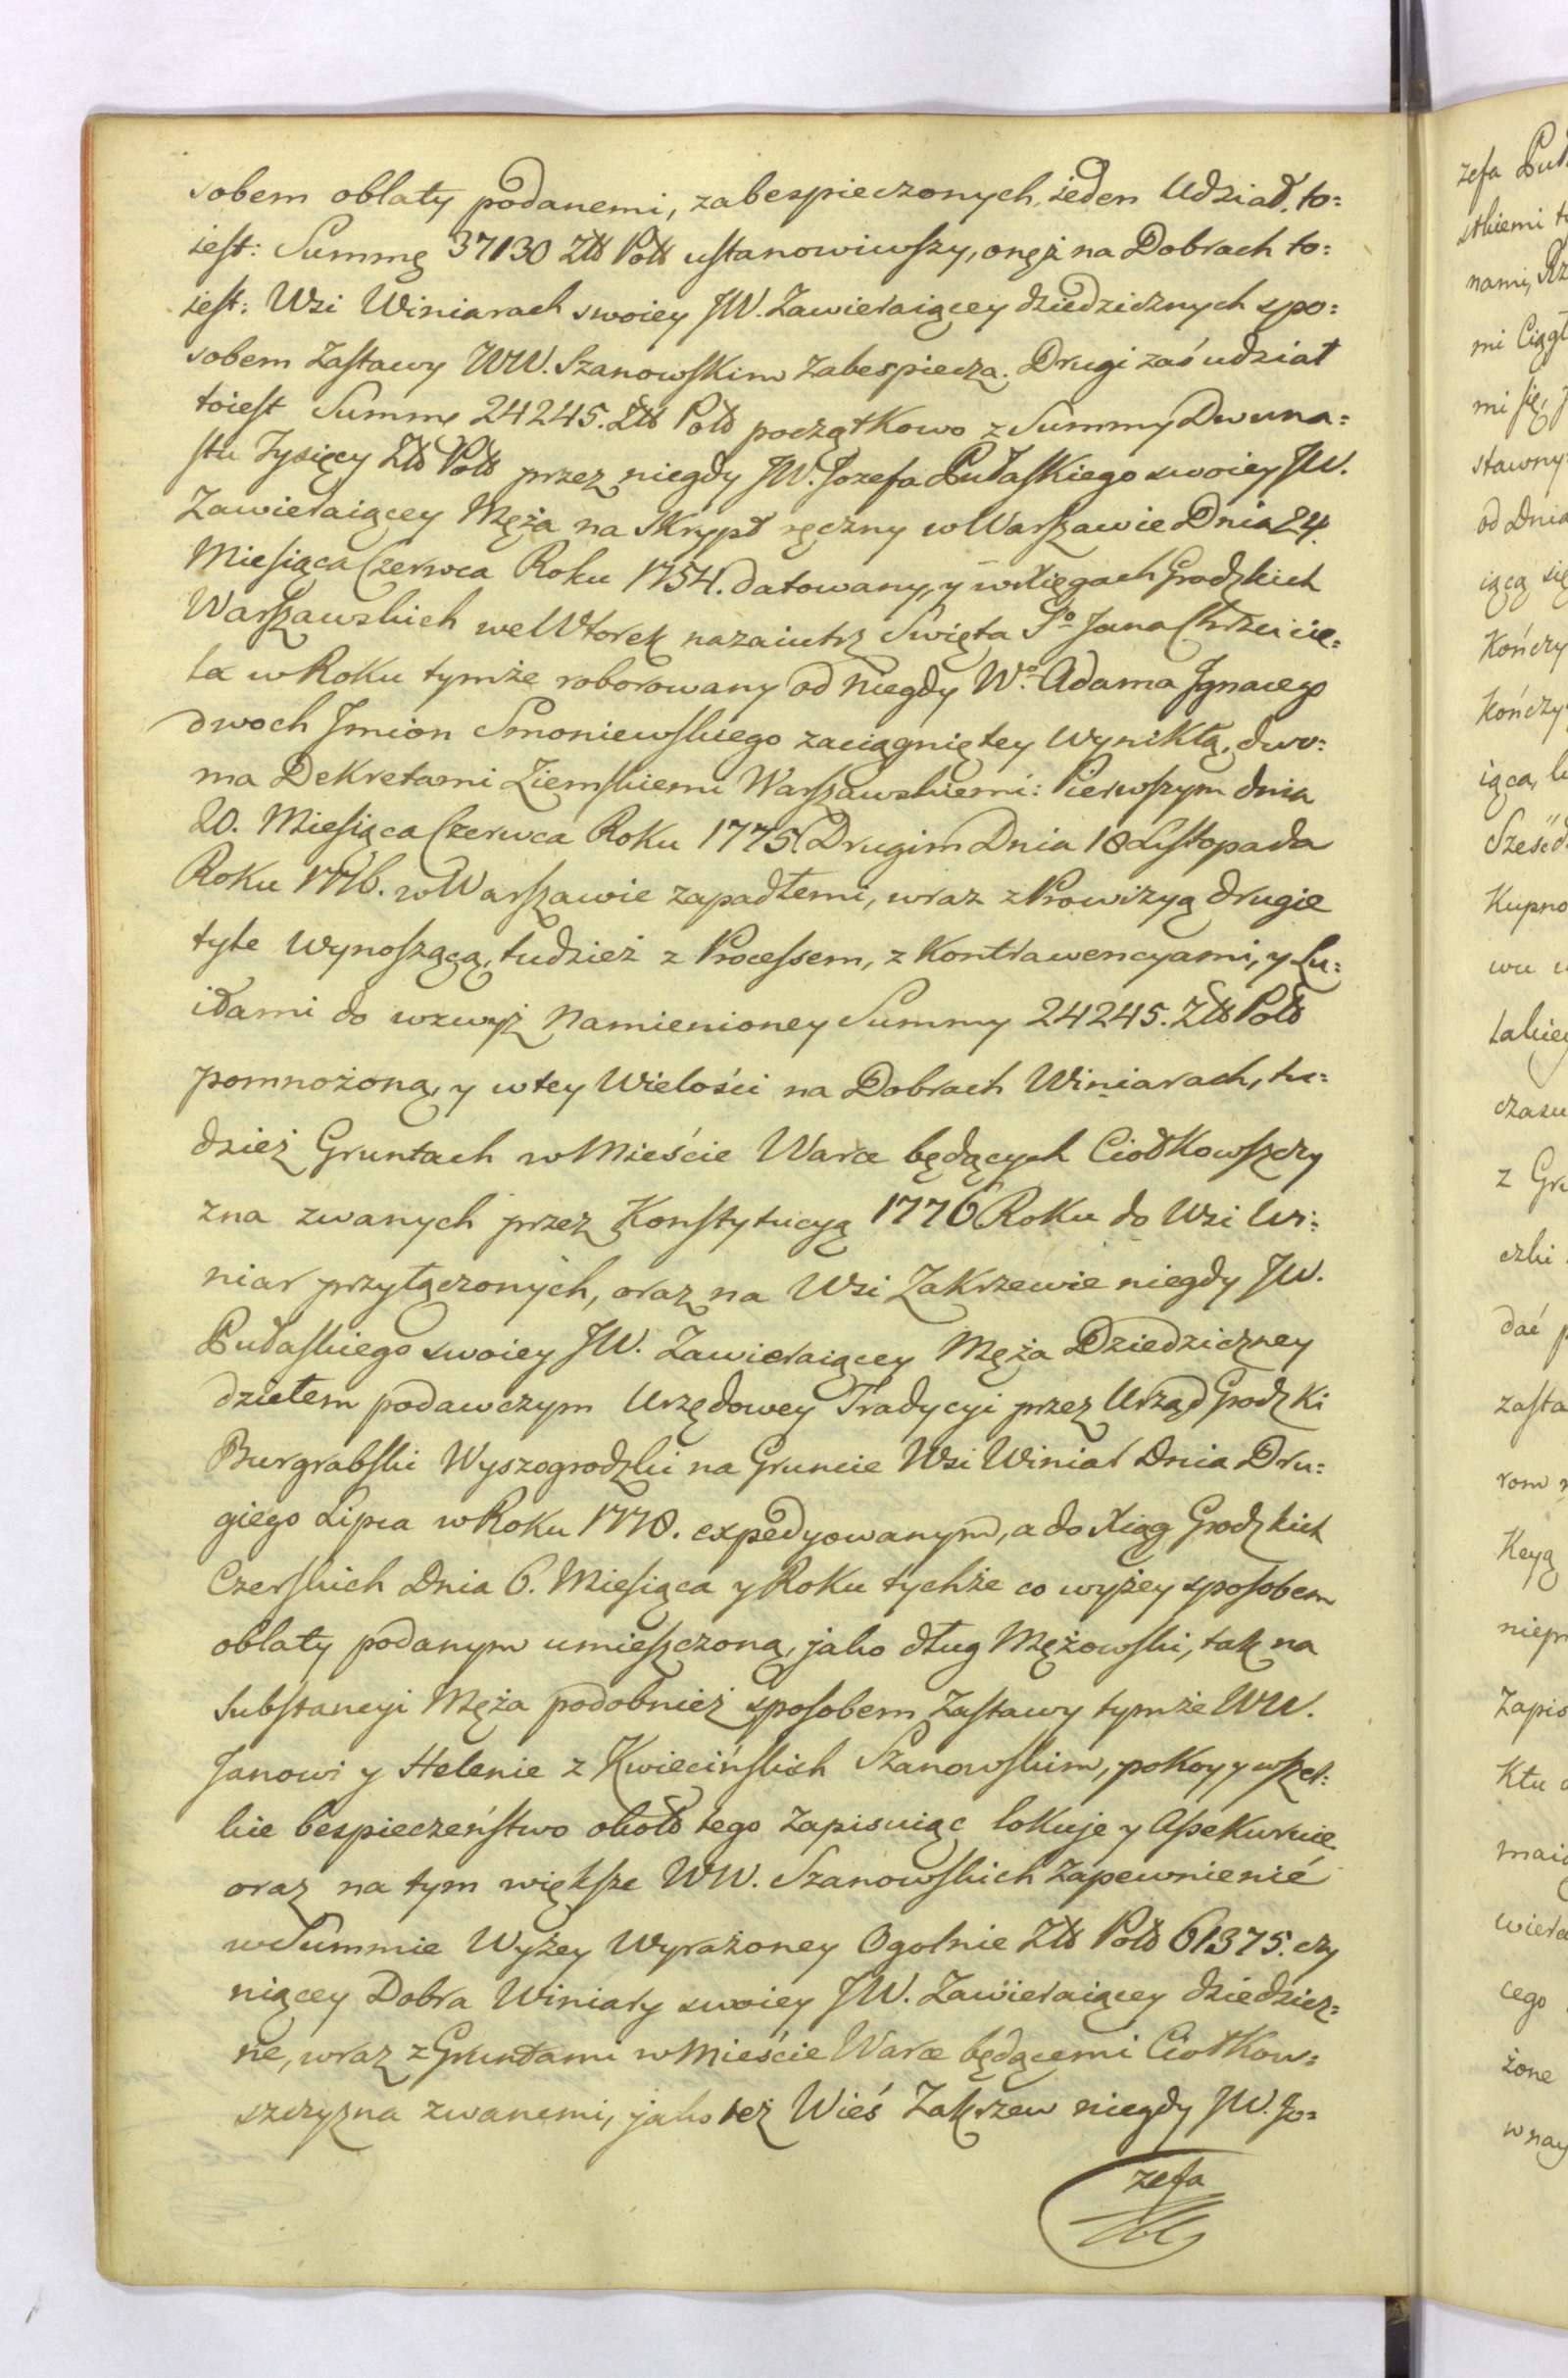 sobem oblaty podanemi, zabespieczonych, ieden Udział, to=
iest: Summę 37130 Zło Polo ustanowiwszy, onęż na Dobrach to=
iest: Wsi Winiarach swoiey JW. Zawieraiącey dziedzicznych spo=
sobem Zastawy WW. Szanowskim zabespiecza. Drugi zaś udział
toiest Summę 24245. Zło Polo początkowo z Summy Dwuna=
stu Tysięcy Zło Polo przez niegdy JW. Jozefa Pułaskiego swoiey JW.
Zawieraiącey Męża na Skrypt ręczny w Warszawie Dnia 24.
Miesiąca Czerwca Roku 1754. datowany, y w Xięgach Grodzkich
Warszawskich we Wtorek nazaiutrz Swięta So Jana Chrzcicie=
la w Roku tymże roborowany od niegdy Wo. Adama Jgnacego
dwoch Jmion Smoniewskiego zaciągniętey wynikłą, dwo=
ma Dekretami Ziemskiemi Warszawskiemi: Pierwszym dnia
20. Miesiąca Czerwca Roku 1775. Drugim Dnia 18 Listopada
Roku 1776. w Warszawie zapadłemi, wraz z Prowizyą drugie
tyle wynoszącą, tudzież z Processem, z Kontrawencyami, y Lu=
idami do wzwyż Namienioney Summy 24245. Zło Polo
pomnożoną, y w tey Wielości na Dobrach Winiarach, tu=
dzież Gruntach w Mieście Warce będących Ciołkowszczy
zna zwanych przez Konstytucyą 1776 Roku do Wsi Wi=
niar przyłączonych, oraz na Wsi Zakrzewie niegdy JW.
Pułaskiego swoiey JW. Zawieraiącey Męża Dziedziczney
dziełem podawczym Urzędowey Tradycyi przez Urząd Grodzki
Burgrabski Wyszogrodzki na Gruncie Wsi Winiar Dnia Dru=
giego Lipca w Roku 1778. expedyowanym, a do Xiąg Grodzkich
Czerskich Dnia 6. Miesiąca y Roku tychże co wyżey sposobem
oblaty podanym umieszczoną, jako dług Mężowski, tak na
Substancyi Męża podobnież sposobem Zastawy tymże WW.
Janowi y Helenie z Kwiecińskich Szanowskim, pokoy y wszel=
kie bespieczeństwo około tego Zapisuiąc lokuje y Assekuruie
oraz na tym większe WW. Szanowskich Zapewnienié
w Summie Wyżey Wyrażoney Ogolnie Zło Polo 61375. czy
niącey Dobra Winiary swoiey JW. Zawieraiącey dziedzicz=
ne, wraz z Gruntami w Mieście Warce będącemi Ciołkow=
szczyzna zwanemi, jako też Wieś Zakrzew niegdy JW. Jo=
zefa